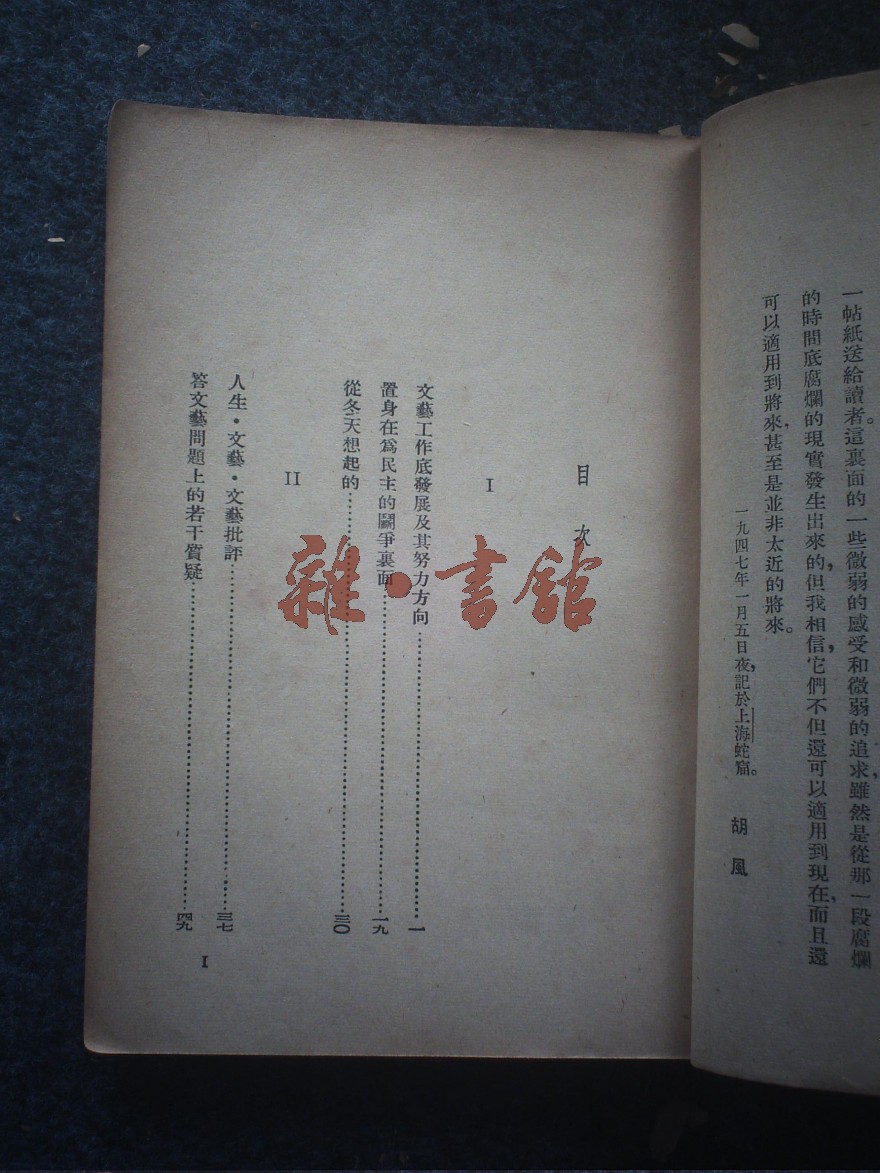 一帖紙送給讀者。這裏面的一些微弱的感受和微弱的追求，雖然是從那一段腐爛
的時間底腐爛的現實發生出來的，但我相信，它們不但還可以適用到現在，而且還
可以適用到將來，甚至是並非太近的將來。
一九四七年一月五日夜，記於上海蛇窟。
胡風
目次
I
文藝工作底發展及其努力方向……一
置身在爲民主的鬭爭裏面……一九
從冬天想起的……三〇
II
人生・文藝・文藝批評……三七
答文藝問題上的若干質疑……四九
I
雜・書館